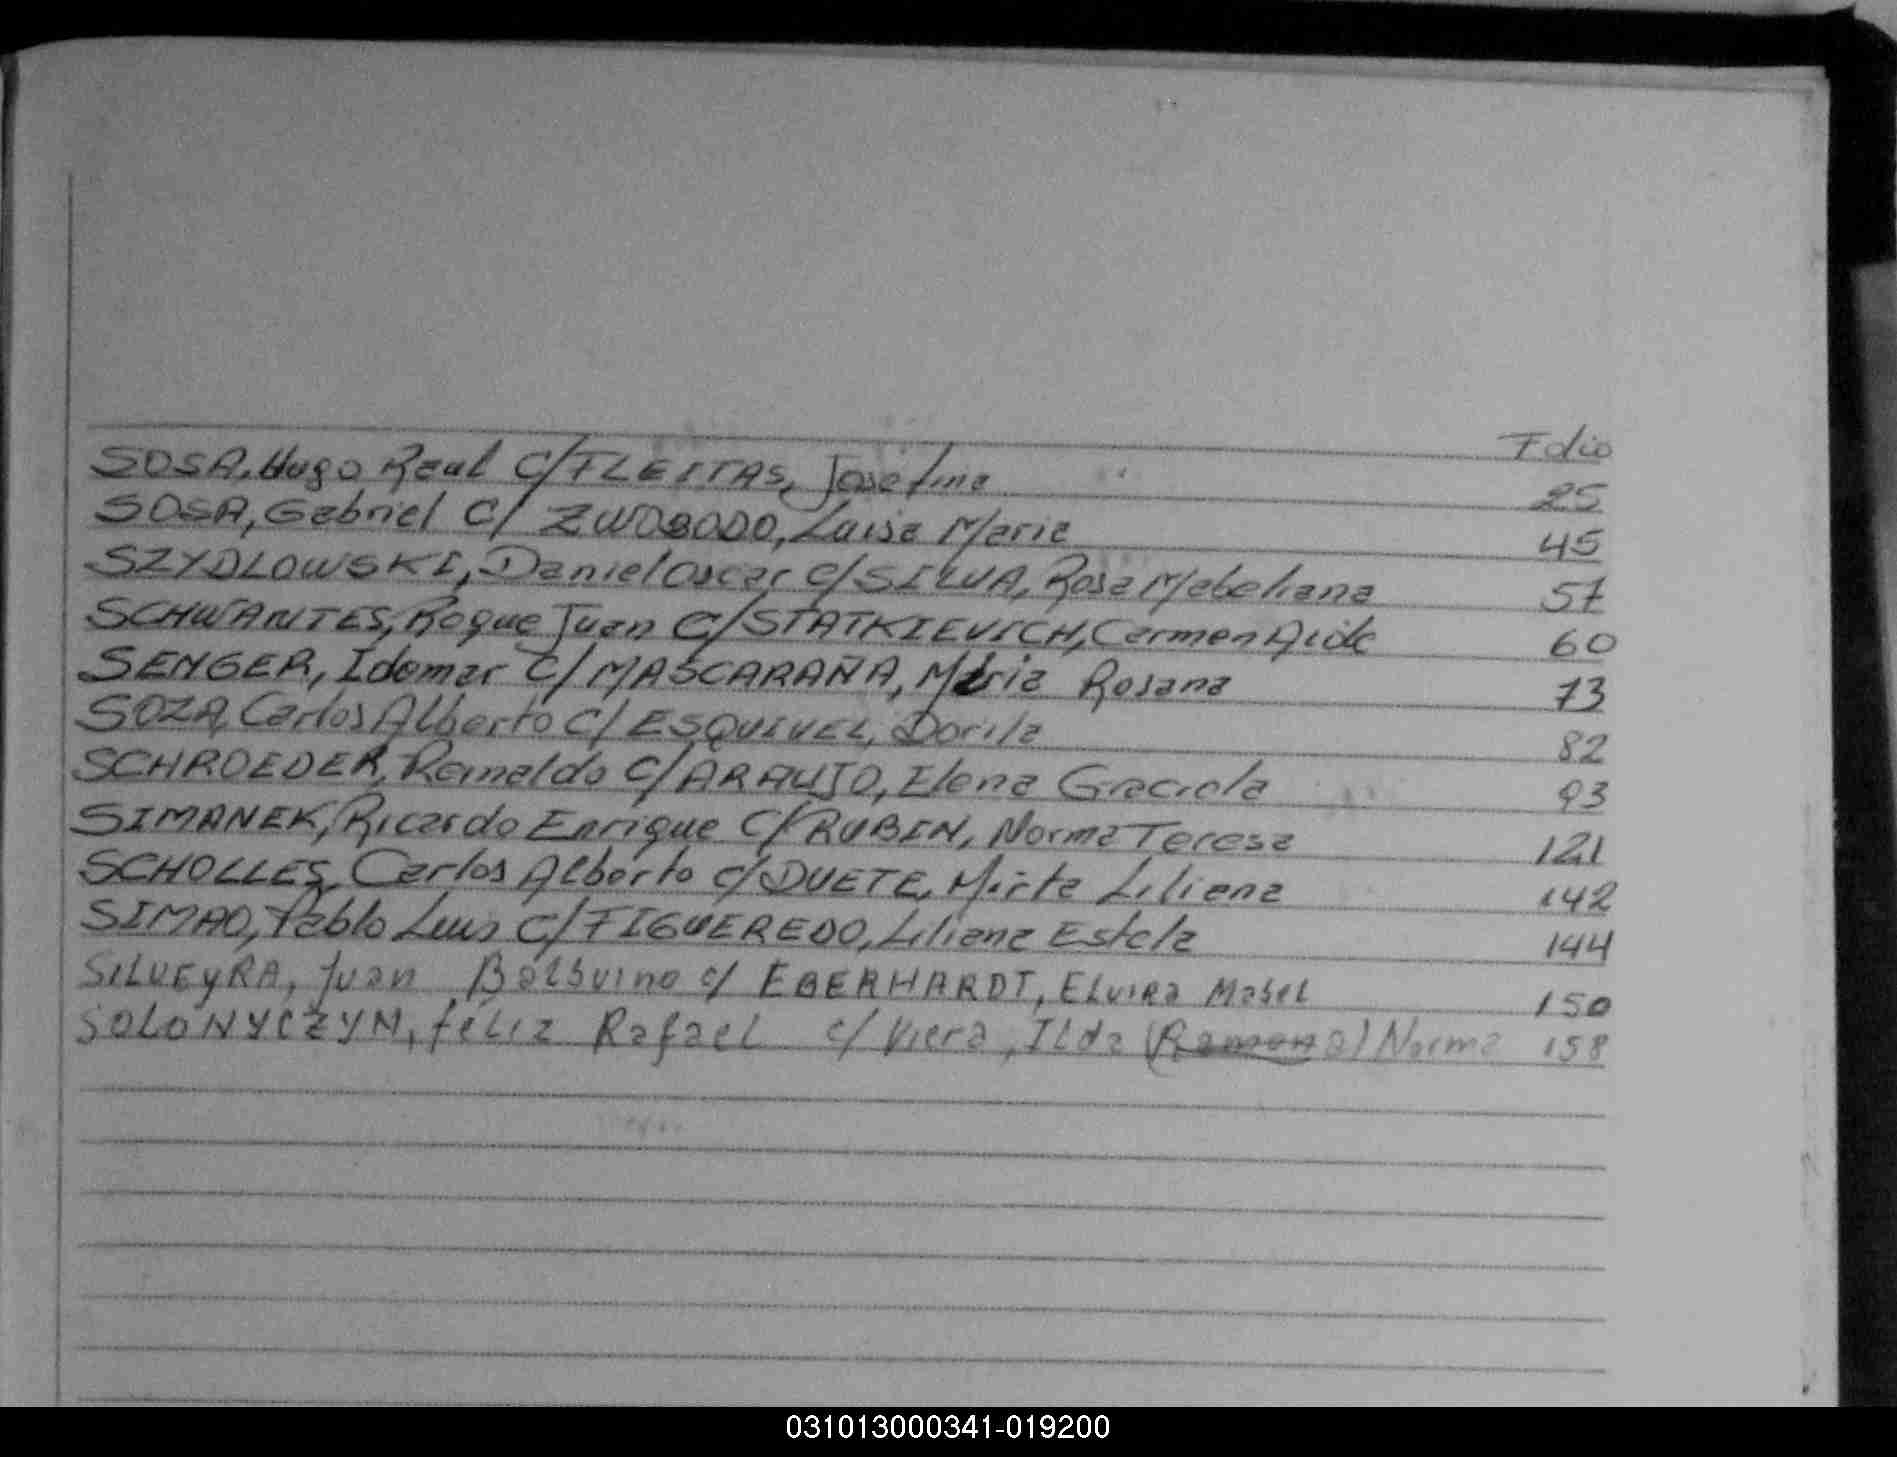 Folio
SOSA, Hugo Raul C/FLEITAS, Josefina 25
SOSA, Gabriel C/ ZWOBODO, Luisa Maria 45
SZYDLOWSKI, Daniel Oscar C/SILVA, Rosa Mabeliana 57
SCHWANTES, Roque Juan C/STATKIEVICH, Carmen Aide 60
SENGER, Idomar C/ MASCARAÑA, Maria Rosana 73
SOZA, Carlos Alberto C/ ESQUIVEL, Dorila 82
SCHROEDER, Reinaldo C/ARAUJO, Elena Graciela 93
SIMANEK, Ricardo Enrique C/RUBIN, Norma Teresa 121
SCHOLLES, Carlos Alberto c/DUETE, Mirta Liliana 142
SIMAO, Pablo Luis C/FIGUEREDO, Liliana Estela 144
SILVEyRA, Juan Balbuino c/ EBERHARDT, ELvira Mabel 150
SOLONYCZYM, féliz Rafael c/ Viera, ILda (Ramona) Norma 158
031013000341-019200